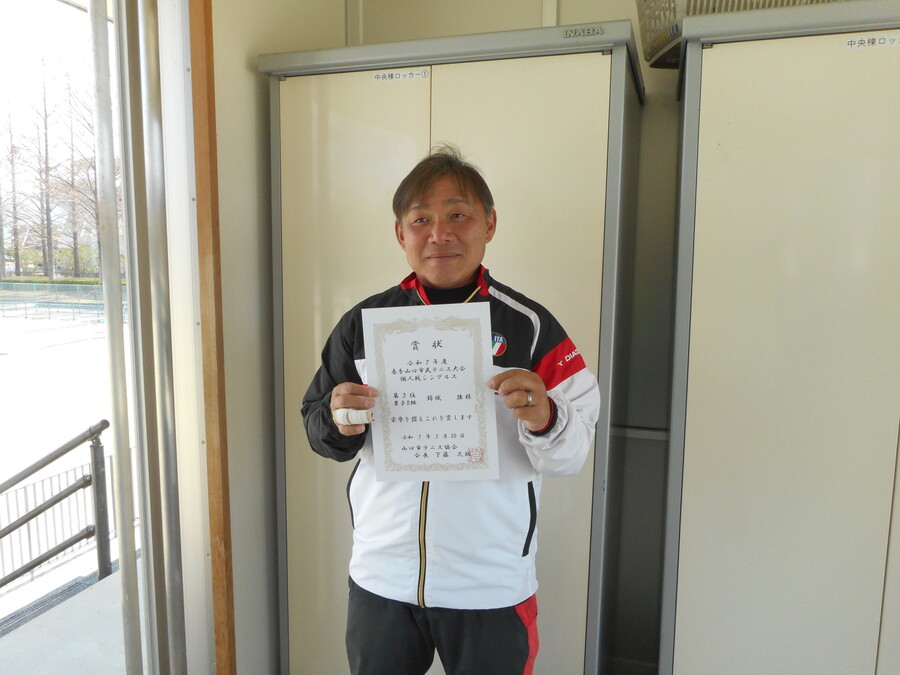 INABA
中央棟ロッカー①
中央棟ロッ
賞状
令和7年度
春季山口市民テニス大会
個人戦シングルス
第3位
男子B組
栄誉を讃えこれを賞します
令和7年3月20日
山口市テニス協会
会長 下藤
ITA
DIAD